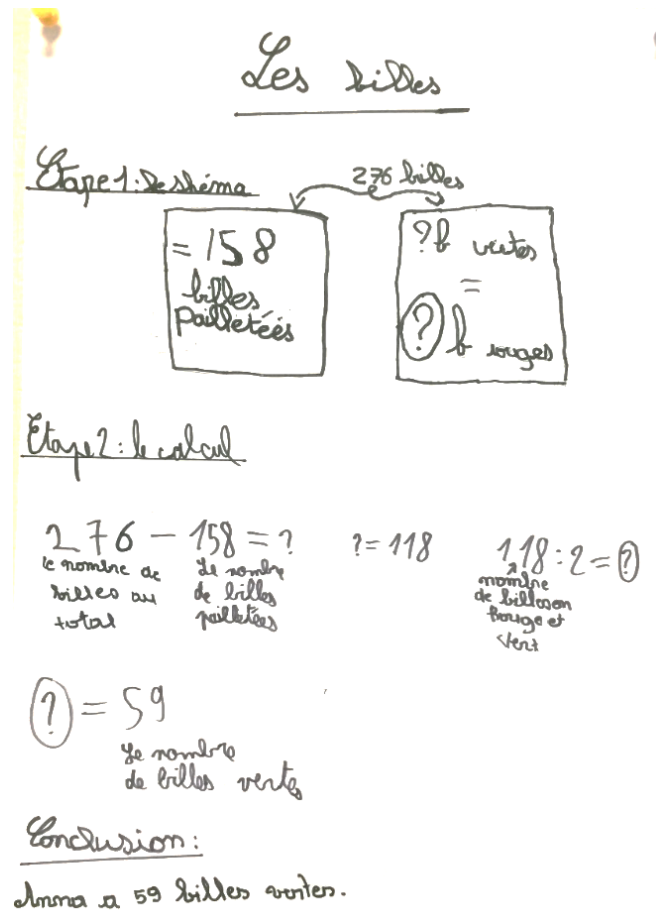 Les billes
Étape 1: le shéma
276 billes
= 158
billes
pailletéés
? b vertes
=
? b rouges
Etape 2 : le calcul
276 - 158 = ? ? = 118 118 : 2 = ?
le nombre de
billes au
total
Le nombre
de billes
pailletées
nombre
de billes en
rouge et
vert
? = 59
Le nombre
de billes vertes
Conclusion :
Anna a 59 billes vertes.